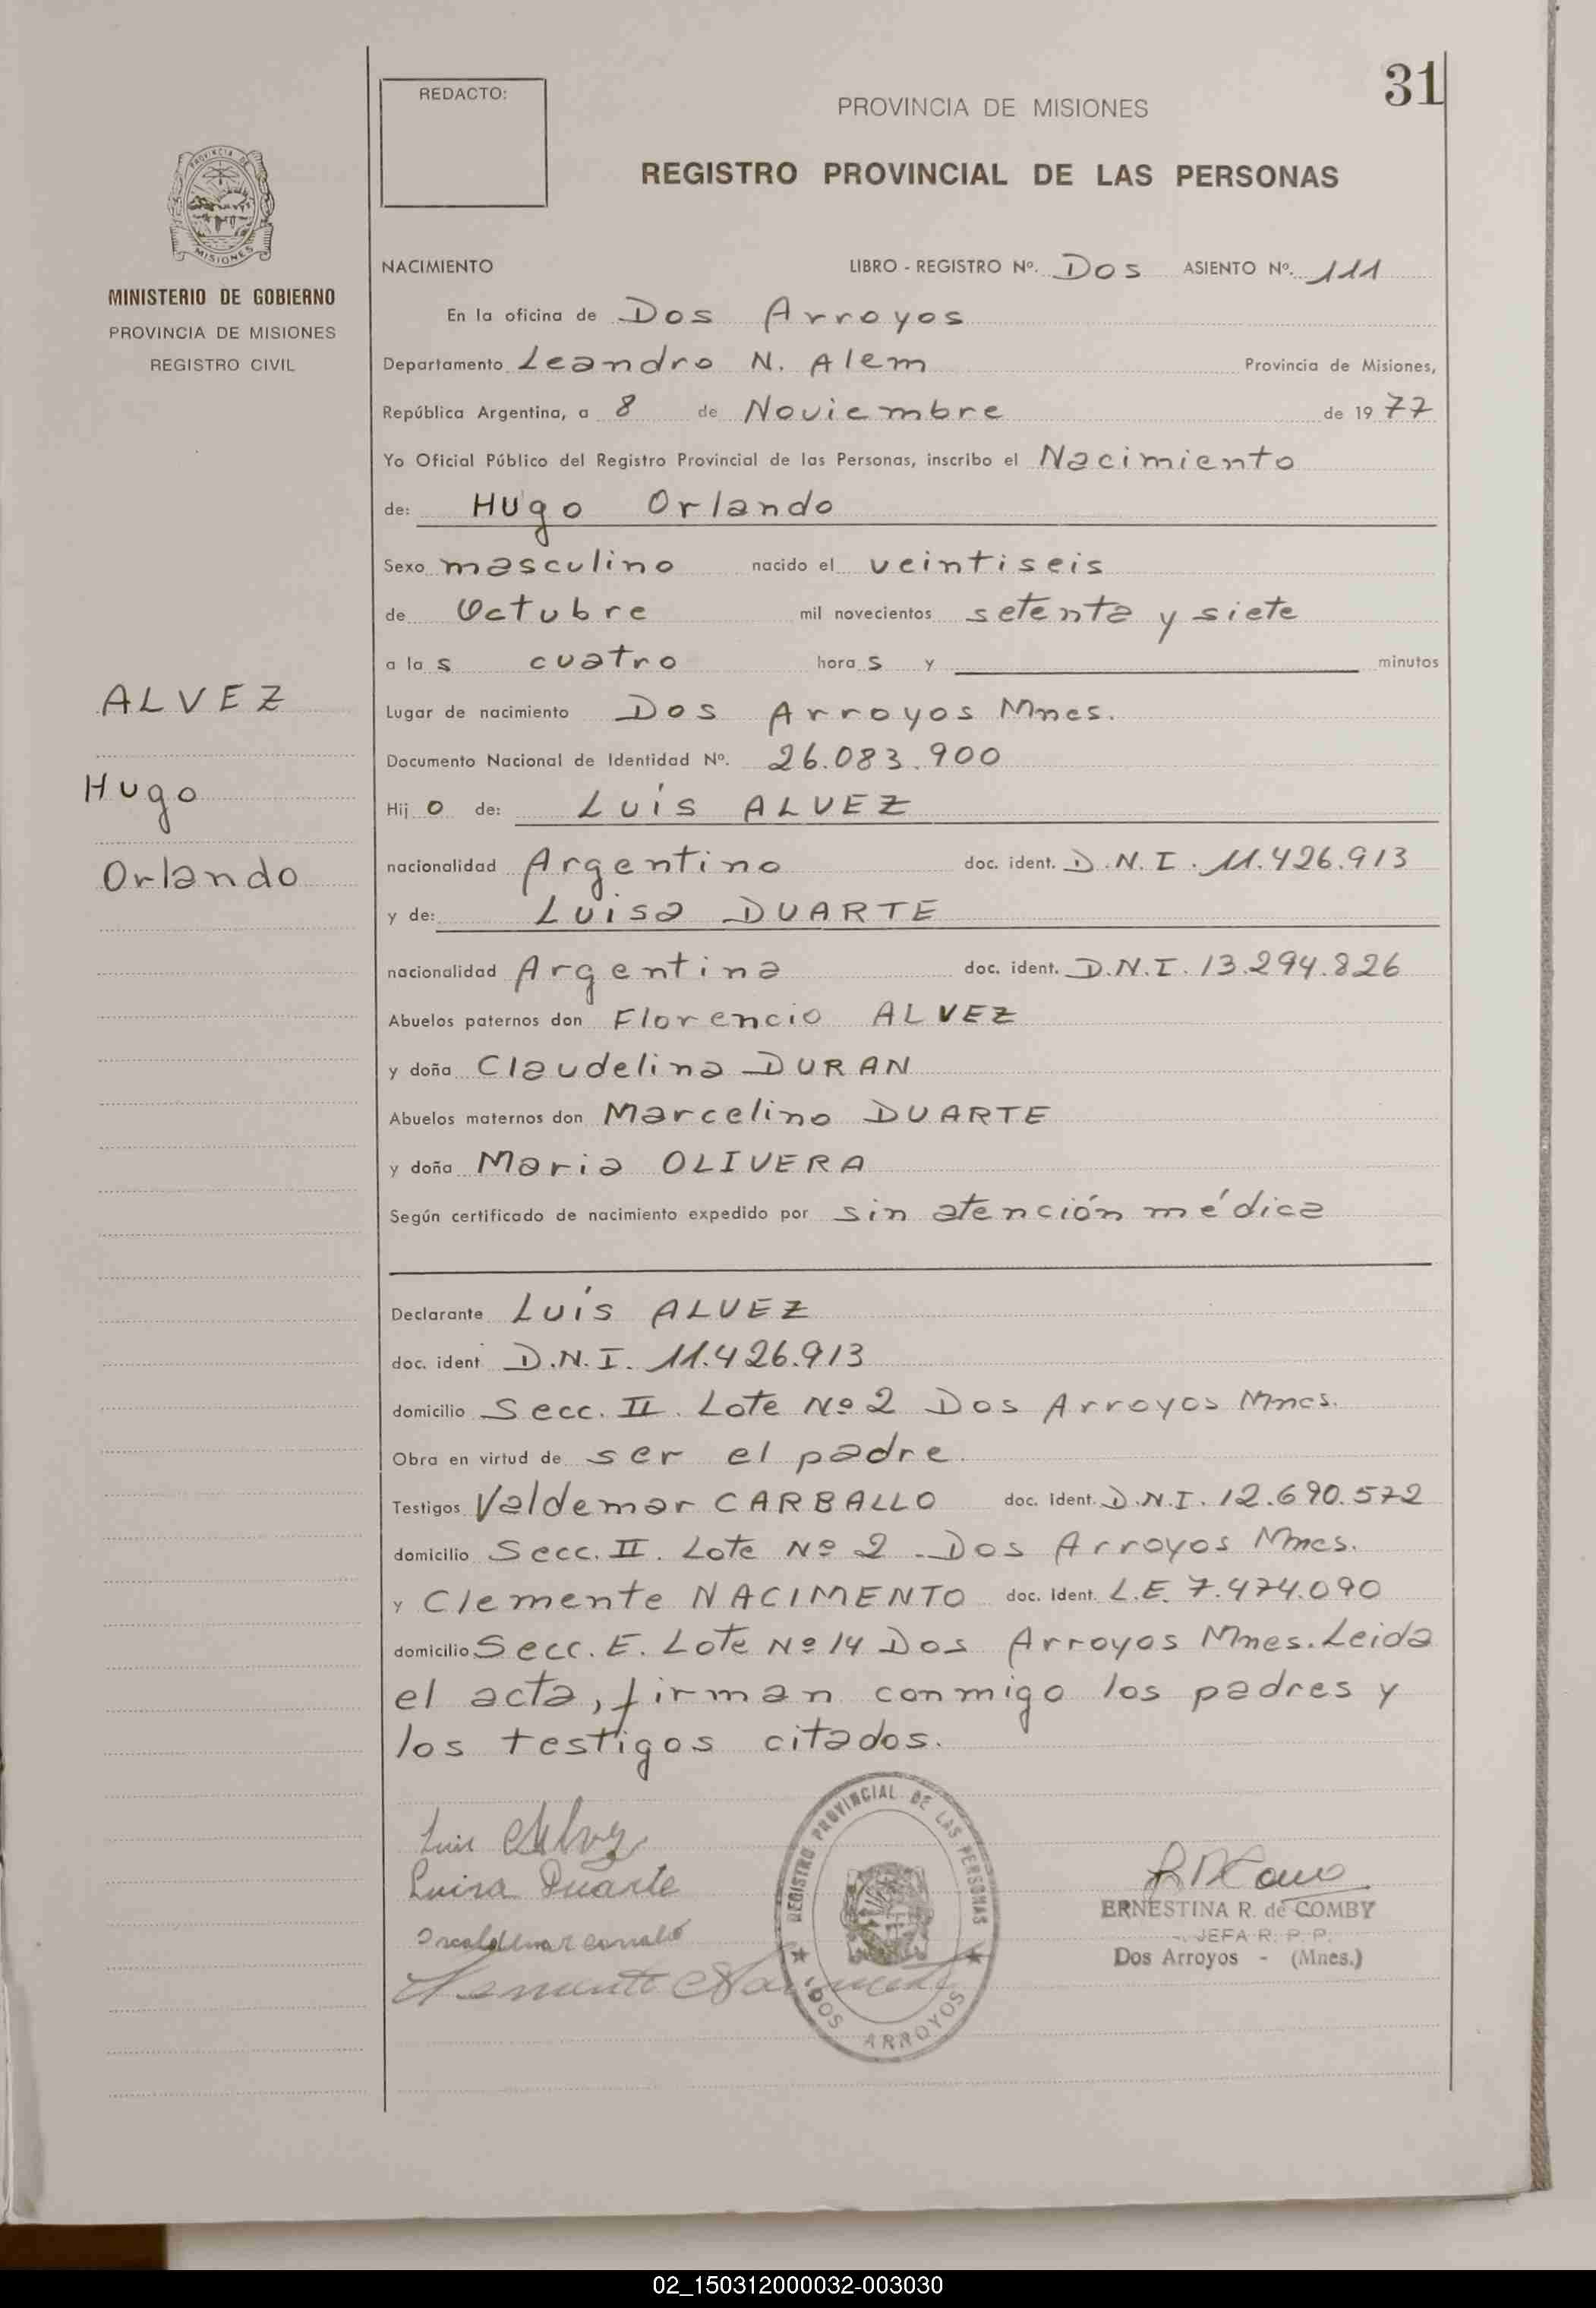 31
REDACTO:
PROVINCIA DE MISIONES
REGISTRO PROVINCIAL DE LAS PERSONAS
PROVINCIA DE
MISIONES
MINISTERIO DE GOBIERNO
PROVINCIA DE MISIONES
REGISTRO CIVIL
NACIMIENTO LIBRO - REGISTRO Nº. Dos ASIENTO Nº. 111
En la oficina de Dos Arroyos
Departamento Leandro N. Alem Provincia de Misiones,
República Argentina, a 8 de Noviembre de 19 77
Yo Oficial Público del Registro Provincial de las Personas, inscribo el Nacimiento
de: Hugo Orlando
Sexo masculino nacido el veintiseis
de Octubre mil novecientos setenta y siete
a la s cuatro hora s y minutos
ALVEZ
Hugo
Orlando
Lugar de nacimiento Dos Arroyos Mnes.
Documento Nacional de Identidad Nº. 26.083.900
Hij o de: Luís ALVEZ
nacionalidad Argentino doc. ident. D.N.I. 11.426.913
y de: Luisa DUARTE
nacionalidad Argentina doc. ident. D.N.I. 13.294.826
Abuelos paternos don Florencio ALVEZ
y doña Claudelina DURAN
Abuelos maternos don Marcelino DUARTE
y doña Maria OLIVERA
Según certificado de nacimiento expedido por sin atención médica
Declarante Luís ALVEZ
doc. ident D.N.I. 11.426.913
domicilio Secc. II. Lote Nº 2 Dos Arroyos Mnes.
Obra en virtud de ser el padre.
Testigos Valdemar CARBALLO doc. ident. D.N.I. 12.690.572
domicilio Secc. II. Lote Nº 2 Dos Arroyos Mnes.
y Clemente NACIMENTO doc. Ident. L.E. 7.474.090
domicilio Secc. E. Lote Nº 14 Dos Arroyos Mnes. Leida
el acta, firman conmigo los padres y
los testigos citados.
Luis Alvez
Luisa Duarte
REGISTRO PROVINCIAL DE LAS PERSONAS
DOS ARROYOS
ERNESTINA R. de COMBY
JEFA R. P. P.
Dos Arroyos - (Mnes.)
02_150312000032-003030